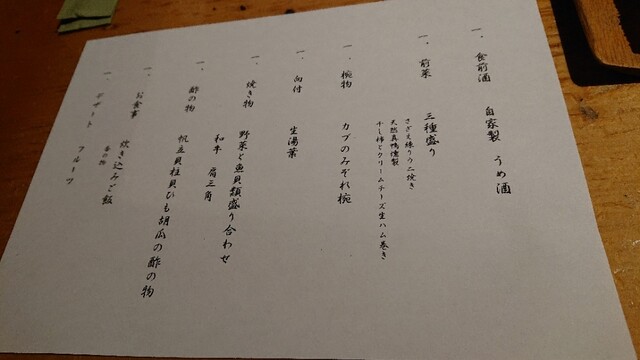 一、食前酒 自家製 うめ酒
一、前菜 三種盛り
さざえ練りうに焼き
天然真鴨燻製
干し柿とクリームチーズ生ハム巻き
一、椀物 カブのみぞれ椀
一、向付 生湯葉
一、焼き物 野菜と魚貝類盛り合わせ
和牛 肩三角
一、酢の物 帆立貝柱貝ひも胡瓜の酢の物
一、お食事 炊き込みご飯
香の物
一、デザート フルーツ